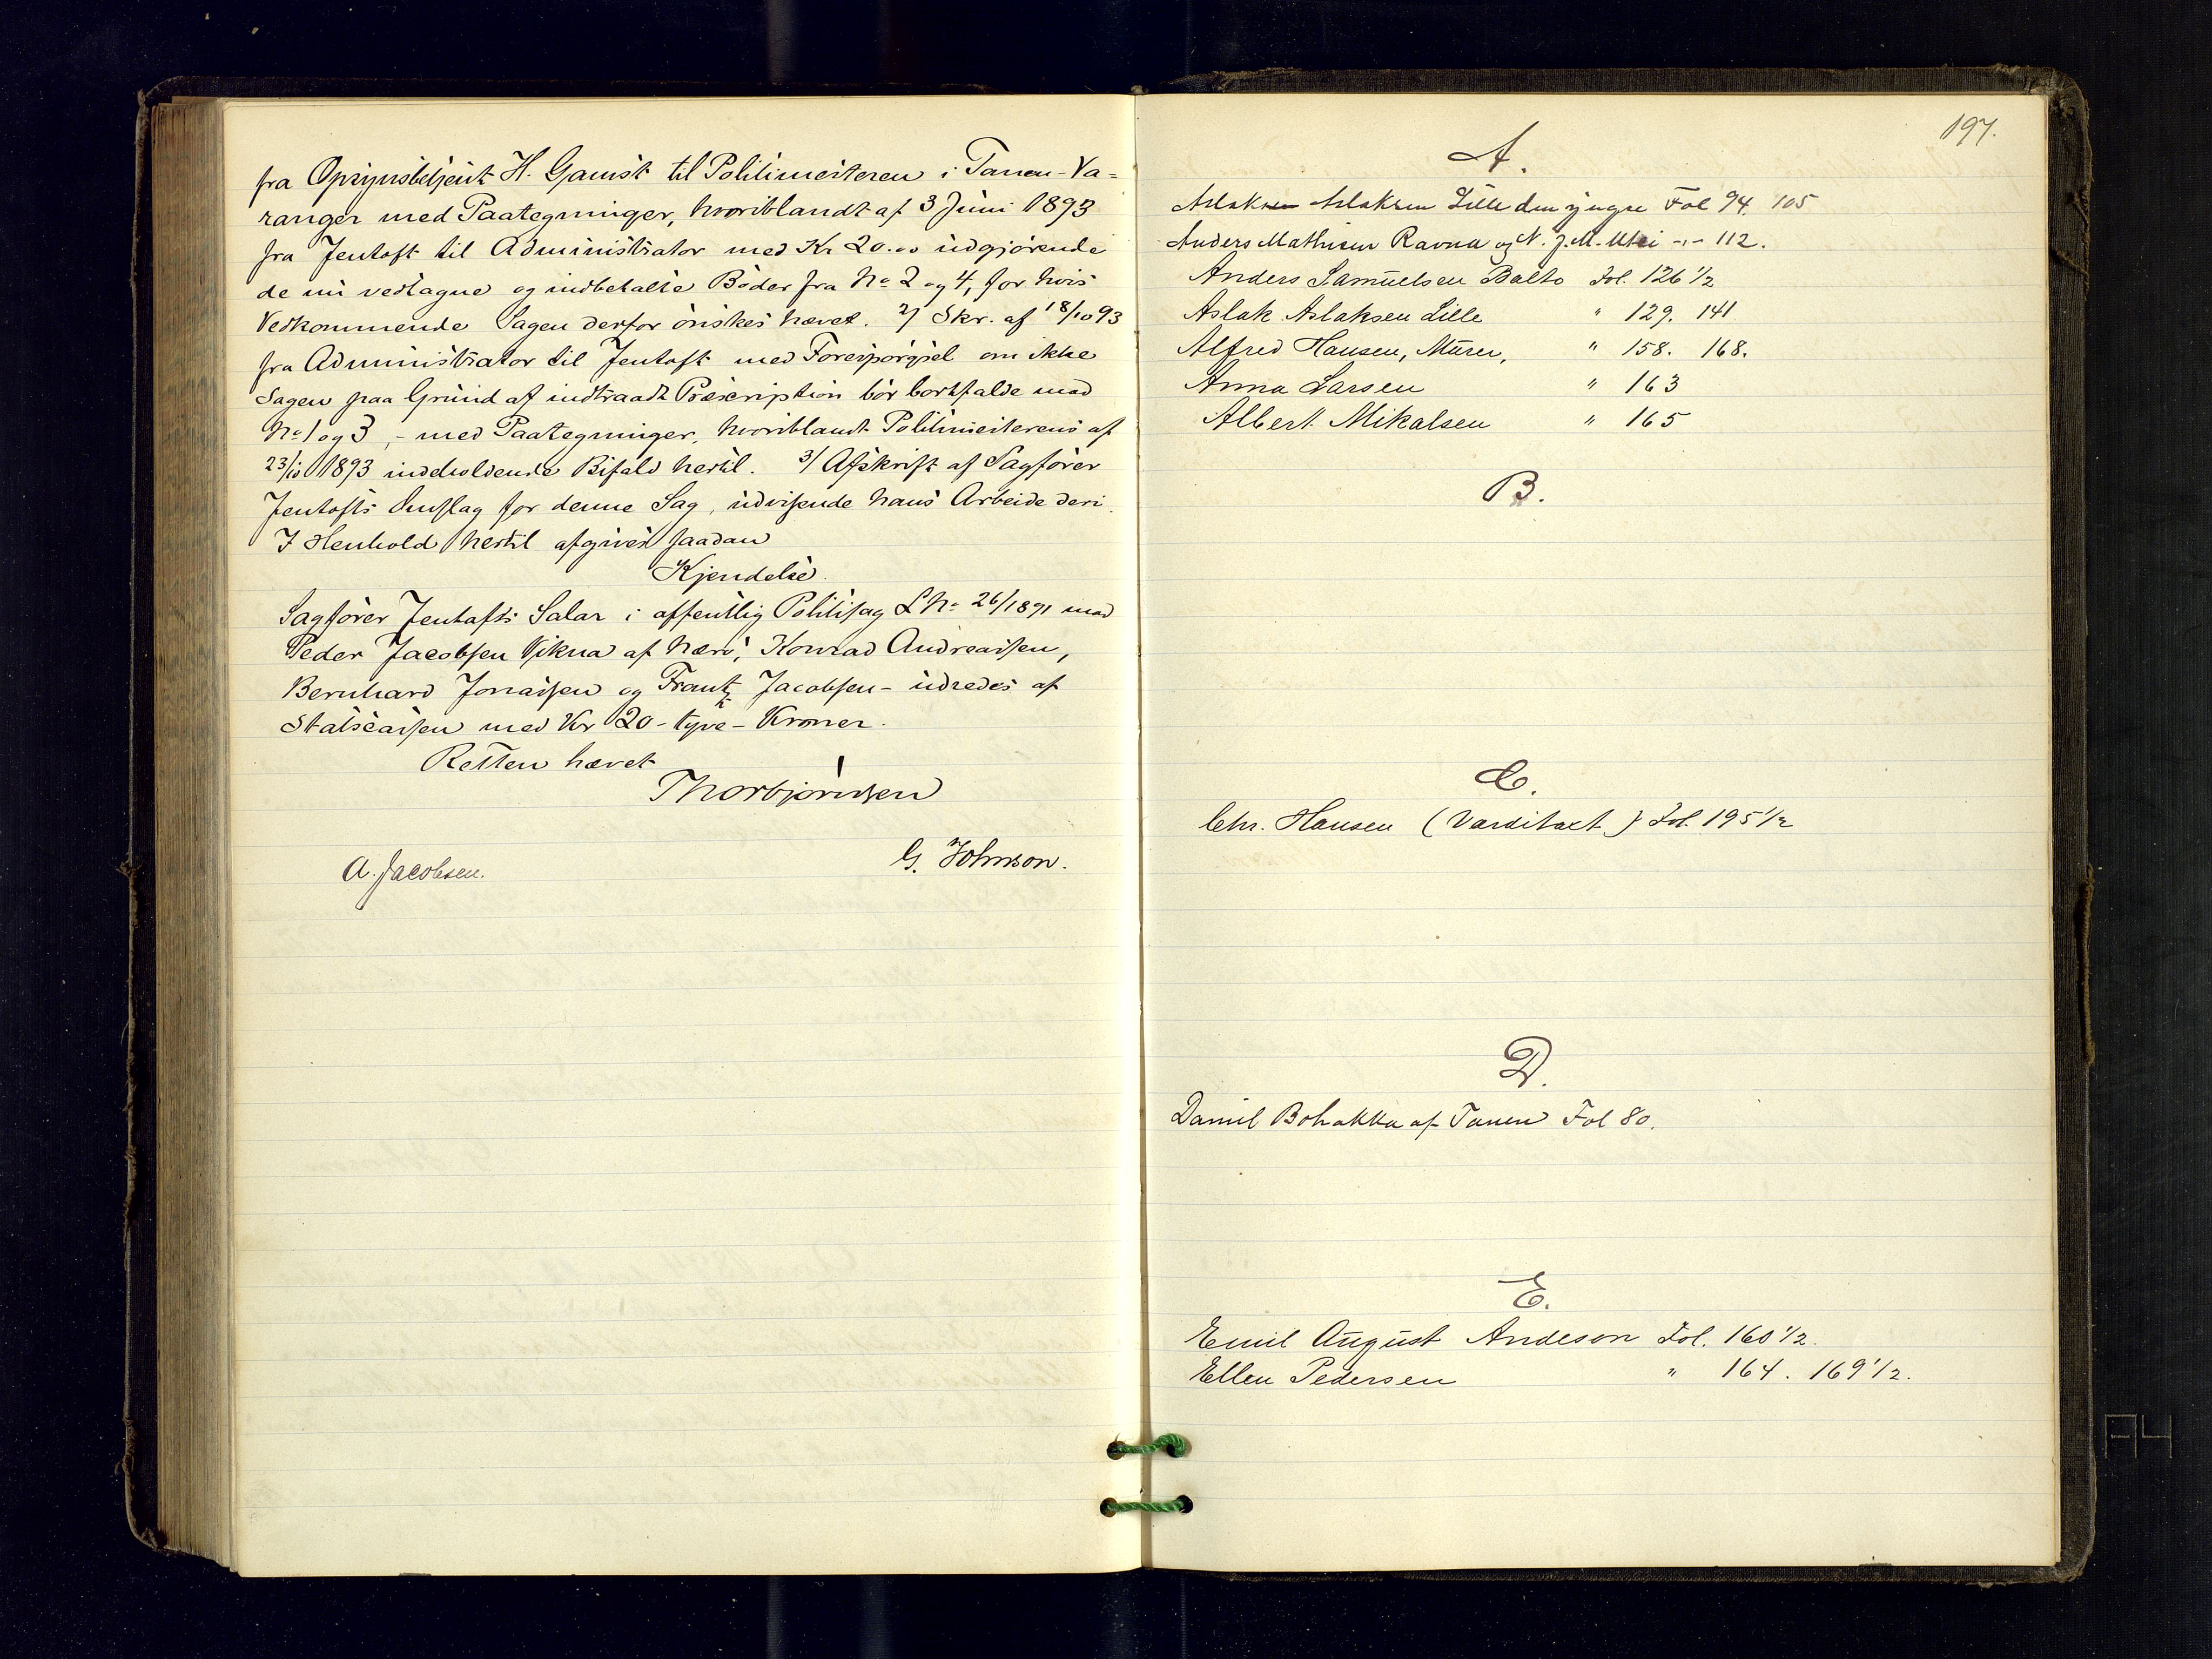 fra Opsynsbetjent H. Gamst til Politimesteren i Tanen-Va=
ranger med Paategninger, hvoriblandt af 3 Juni 1893
fra Jentoft til Administrator med Kr 20.00 udgjörende
de nu vedtagne og indbetalte Böder fra No 2 og 4, for hvis
Vedkommende Sagen derfor önskes hævet. 2/ Skr. af 18/10 93
fra Administrator til Jentoft med Forespörgsel om ikke
Sagen paa Grund af indtraadt Præscription bör bortfalde mod
No 1 og 3, - med Paategninger, hvoriblandt Politimesterens af
23/10 1893 indeholdende Bifald hertil. 3/ Afskrift af Sagförer
Jentofts Omslag for denne Sag, udvisende hans Arbeide deri.
I Henhold hertil afgives saadan
Kjendelse.
Sagförer Jentofts Salar i offentlig Politisag L No 26/1891 mod
Peder Jacobsen Vikna af Nærö, Konrad Andreassen,
Bernhard Jonassen og Frantz Jacobsen - udredes af
Statscassen med Kr 20 - tyve - Kroner.
Retten hævet
Thorbjörnsen
G. Johnson.
A. Jacobsen.
197.
A.
Aslak Aslaksen Lille den yngre Fol 94. 105
Anders Mathisen Ravna og N. J. M. Utsi -"- 112.
Anders Samuelsen Balto Fol. 126 1/2
Aslak Aslaksen Lille " 129. 141
Alfred Hansen, Murer, " 158. 168.
Anna Larsen " 163
Albert Mikalsen " 165
B.
C.
Chr. Hansen (Varditaxt) Fol. 195 1/2
D.
Daniel Bohakka af Tanen Fol 80.
E.
Emil August Andeson Fol. 160 1/2.
Ellen Pedersen " 164. 169 1/2.